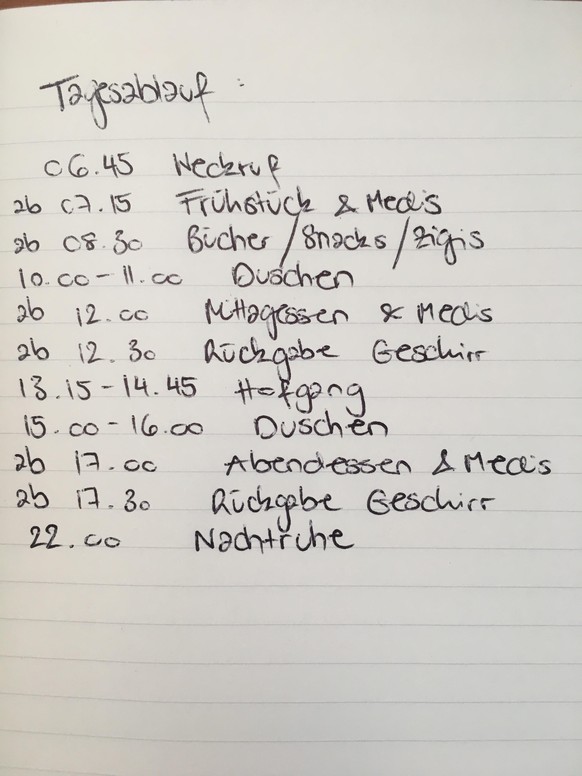 Tagesablauf :
06.45 Weckruf
ab 07.15 Frühstück & Medis
ab 08.30 Bücher / Snacks / Zigis
10.00 - 11.00 Duschen
ab 12.00 Mittagessen & Medis
ab 12.30 Rückgabe Geschirr
13.15 - 14.45 Hofgang
15.00 - 16.00 Duschen
ab 17.00 Abendessen & Medis
ab 17.30 Rückgabe Geschirr
22.00 Nachtruhe